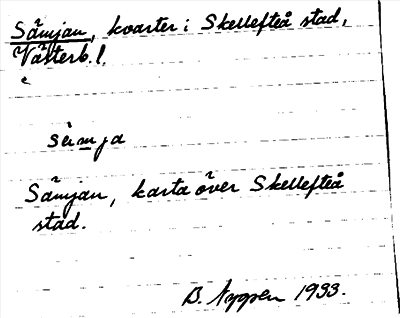 Sämjan, kvarter i Skellefteå stad,
Västerb. l.
sämja
Sämjan, karta över Skellefteå
stad.
B. Nyppen 1933.